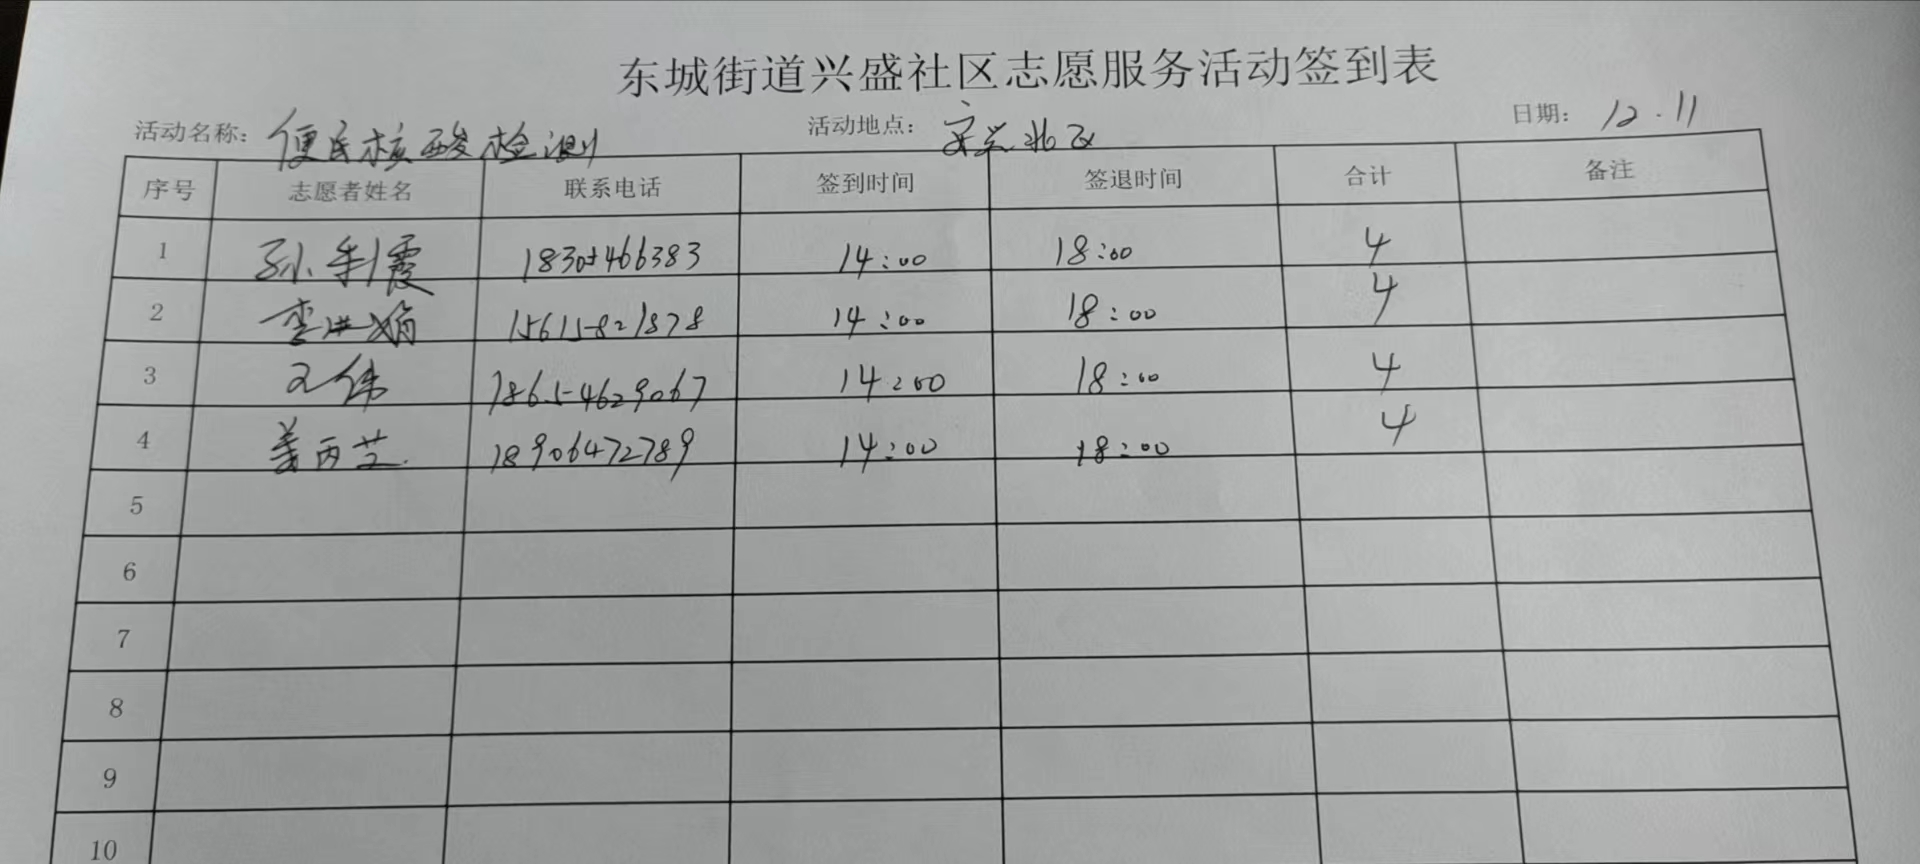 东城街道兴盛社区志愿服务活动签到表
活动名称: 便民核酸检测 活动地点: 安兴北区 日期: 12.11
序号 志愿者姓名 联系电话 签到时间 签退时间 合计 备注
1 孙利霞 14:00 18:00 4
2 李洪娟 15615821878 14:00 18:00 4
3 王伟 18654629067 14:00 18:00 4
4 姜丙芝 18906472789 14:00 18:00 4
5
6
7
8
9
10